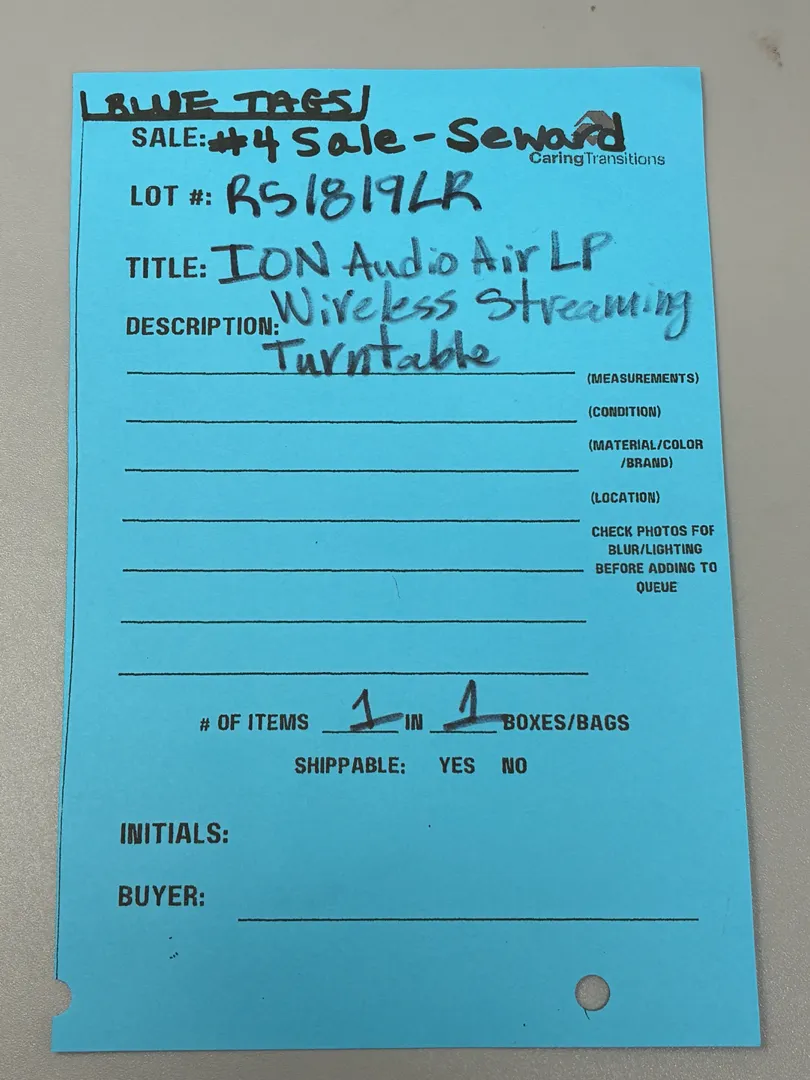 BLUE TAGS
SALE: #4 Sale - Seward
CaringTransitions
LOT #: RS1819LR
TITLE: ION Audio Air LP
Wireless Streaming
DESCRIPTION:
Turntable
(MEASUREMENTS)
(CONDITION)
(MATERIAL/COLOR
/BRAND)
(LOCATION)
CHECK PHOTOS FOR
BLUR/LIGHTING
BEFORE ADDING TO
QUEUE
# OF ITEMS 1 IN 1 BOXES/BAGS
SHIPPABLE: YES NO
INITIALS:
BUYER: